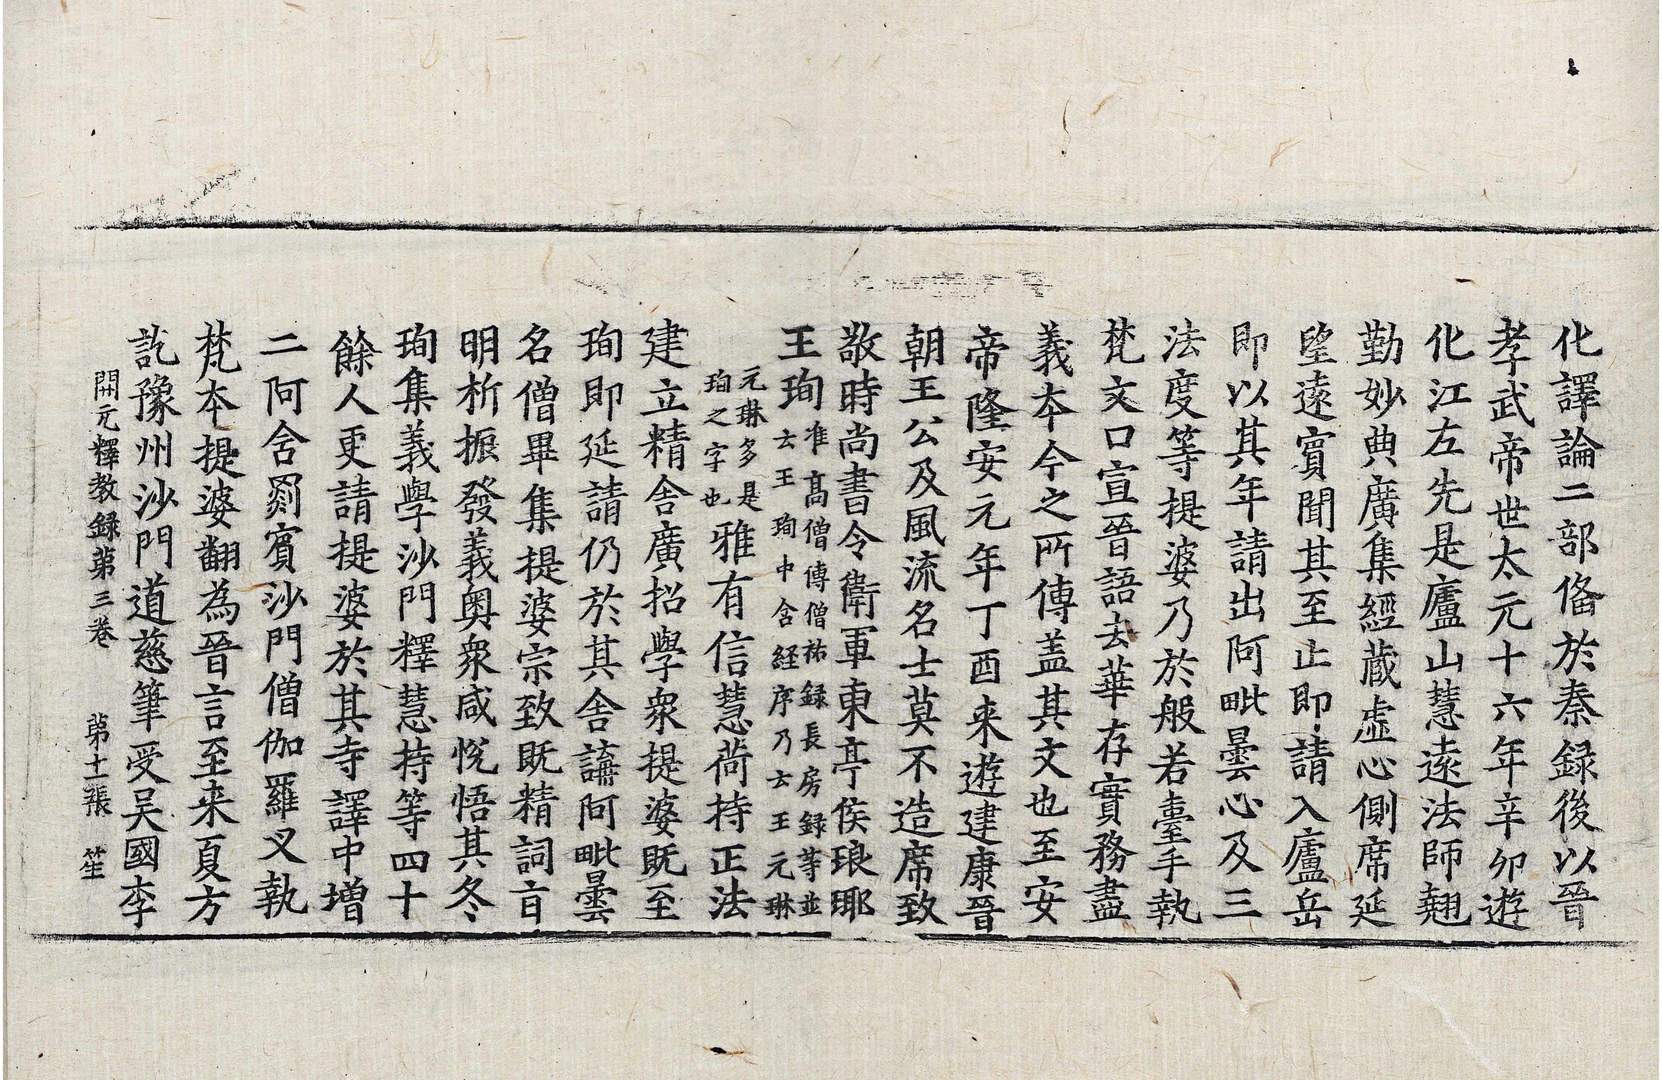 化譯論二部俻於秦録後以晉
孝武帝世太元十六年辛卯遊
化江左先是廬山慧遠法師翹
勤妙典廣集經藏虛心側席延
望遠賓聞其至止即請入廬岳
即以其年請出阿毗曇心及三
法度等提婆乃於般若臺手執
梵文口宣晉語去華存實務盡
義本今之所傳盖其文也至安
帝隆安元年丁酉来遊建康晉
朝王公及風流名士莫不造席致
敬時尚書令衛軍東亭侯琅耶
王珣准高僧傳僧祐録長房録等並
云王珣中含経序乃云王元琳
元琳多是
珣之字也雅有信慧荷持正法
建立精舍廣招學衆提婆既至
珣即延請仍於其舍講阿毗曇
名僧畢集提婆宗致既精詞旨
明析振發義奥衆咸悅悟其冬
珣集義學沙門釋慧持等四十
餘人更請提婆於其寺譯中增
二阿含罽賓沙門僧伽羅叉執
梵本提婆翻為晉言至来夏方
訖豫州沙門道慈筆受吴國李
開元釋教録苐三巻 苐十一張 笙